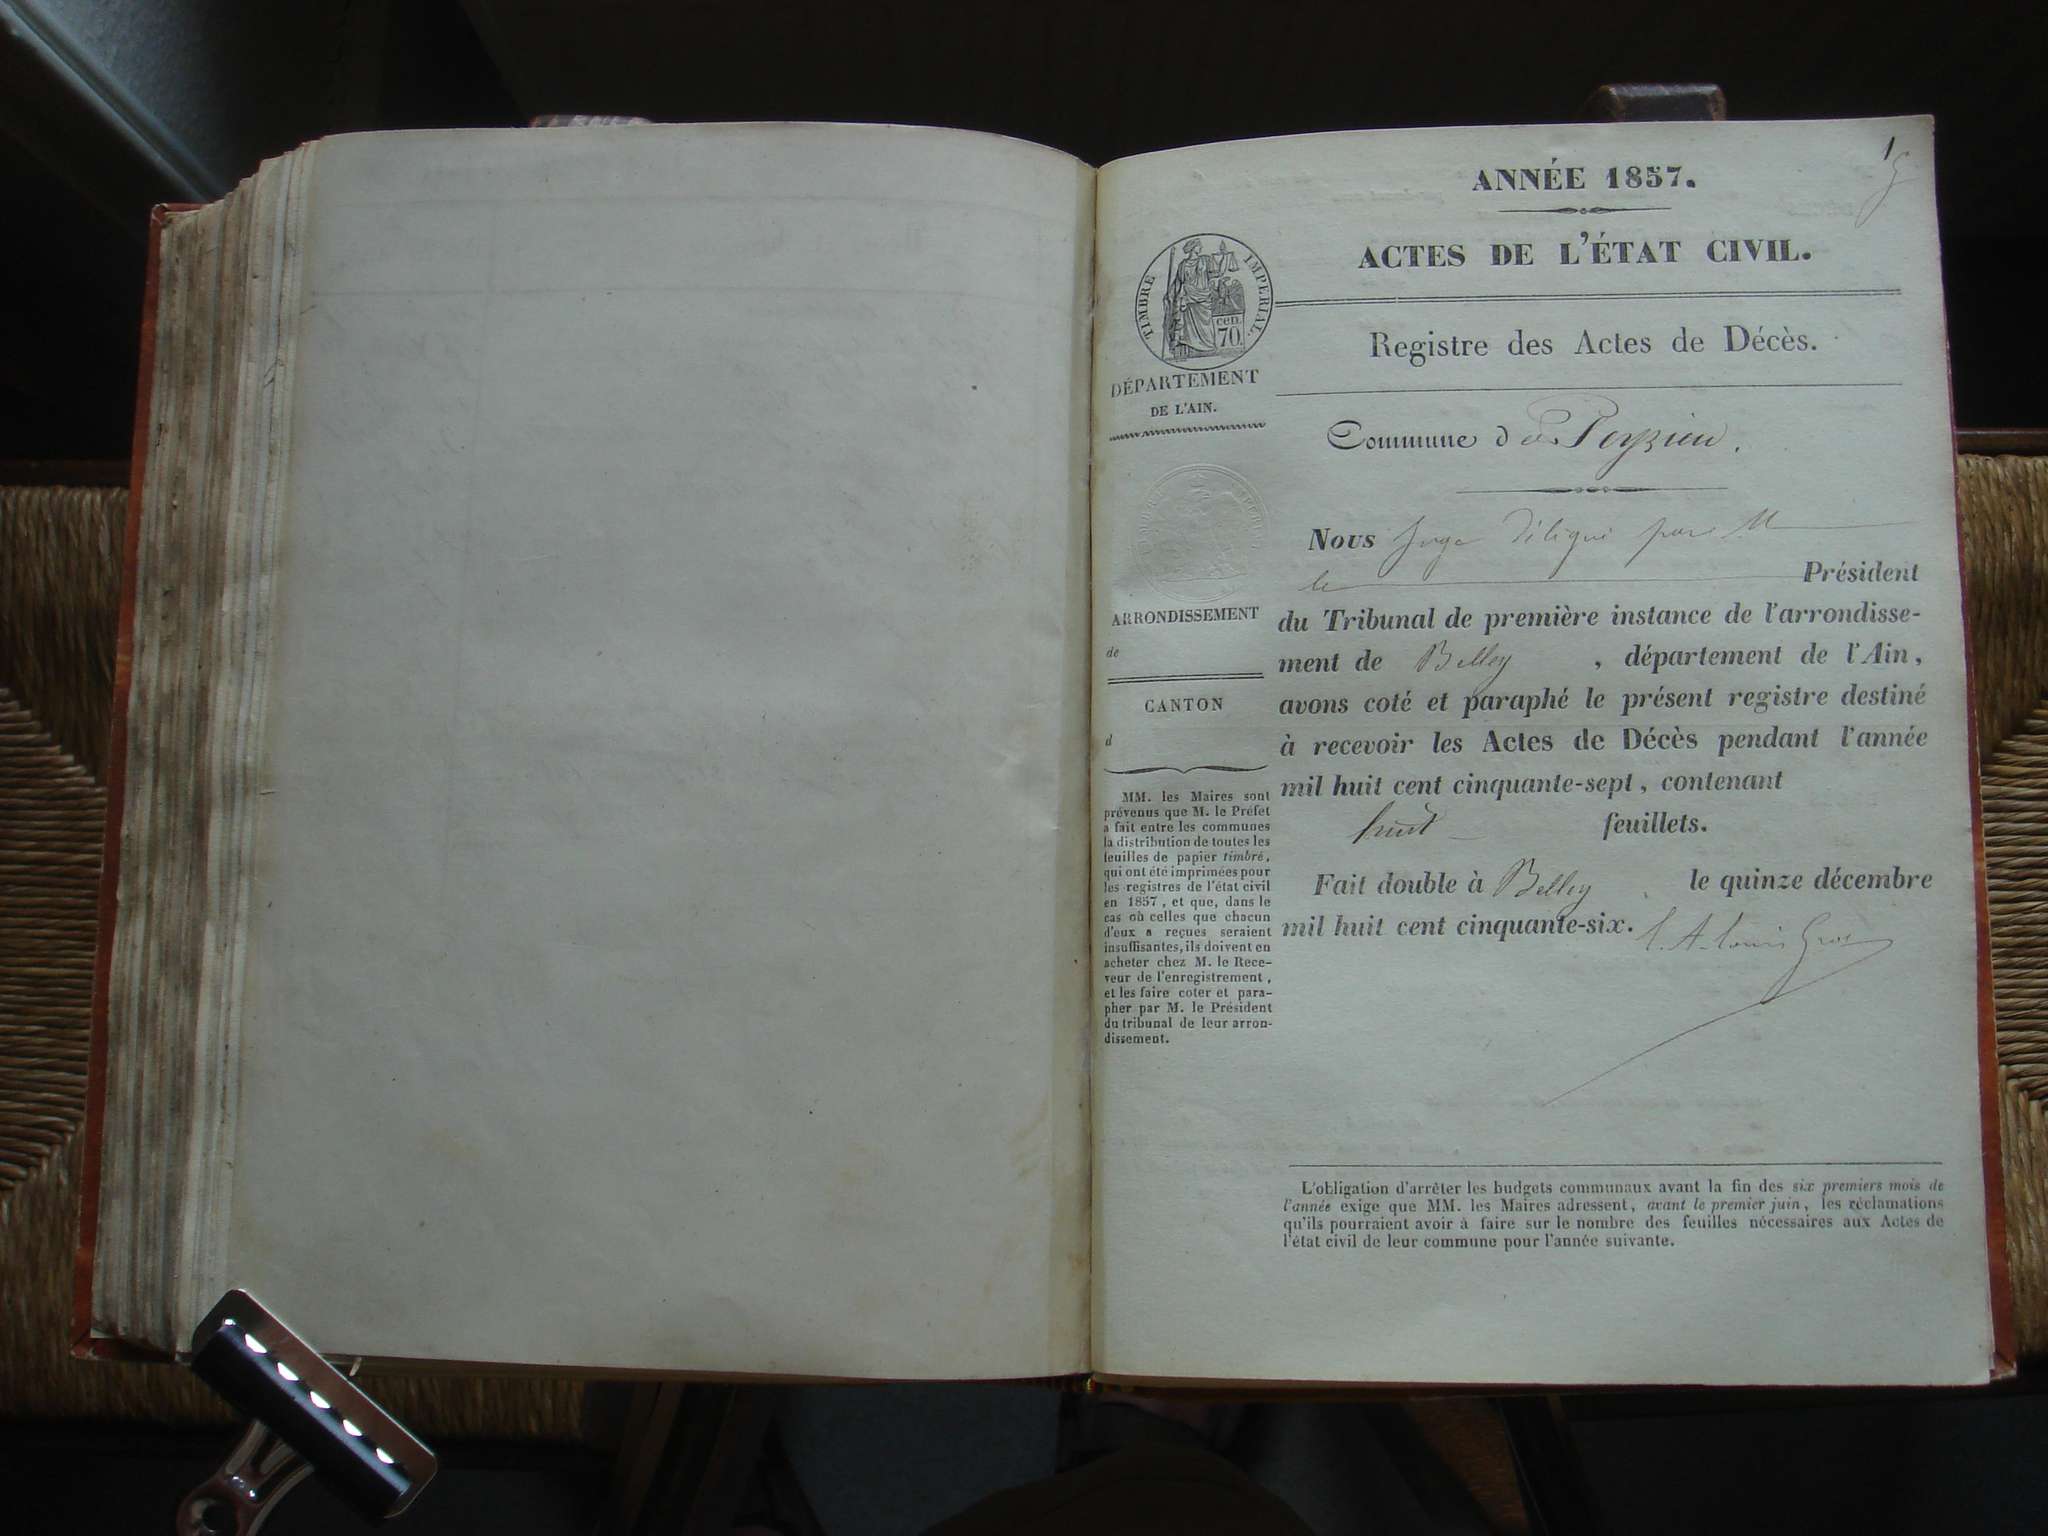 1
ANNÉE 1857.
ACTES DE L'ÉTAT CIVIL.
TIMBRE IMPERIAL.
cen.
70.
Registre des Actes de Décès.
DÉPARTEMENT
DE L'AIN.
Commune de Peyzieu.
Nous Juge délégué par M
le Président
du Tribunal de première instance de l'arrondisse-
ment de Belley, département de l'Ain,
avons coté et paraphé le présent registre destiné
à recevoir les Actes de Décès pendant l'année
mil huit cent cinquante-sept, contenant
huit feuillets.
Fait double à Belley, le quinze décembre
mil huit cent cinquante-six.
ARRONDISSEMENT
de
CANTON
d
MM. les Maires sont
prévenus que M. le Préfet
a fait entre les communes
la distribution de toutes les
feuilles de papier timbré,
qui ont été imprimées pour
les registres de l'état civil
en 1857, et que, dans le
cas où celles que chacun
d'eux a reçues seraient
insuffisantes, ils doivent en
acheter chez M. le Rece-
veur de l'enregistrement,
et les faire coter et para-
pher par M. le Président
du tribunal de leur arron-
dissement.
L'obligation d'arrêter les budgets communaux avant la fin des six premiers mois de
l'année exige que MM. les Maires adressent, avant le premier juin, les réclamations
qu'ils pourraient avoir à faire sur le nombre des feuilles nécessaires aux Actes de
l'état civil de leur commune pour l'année suivante.